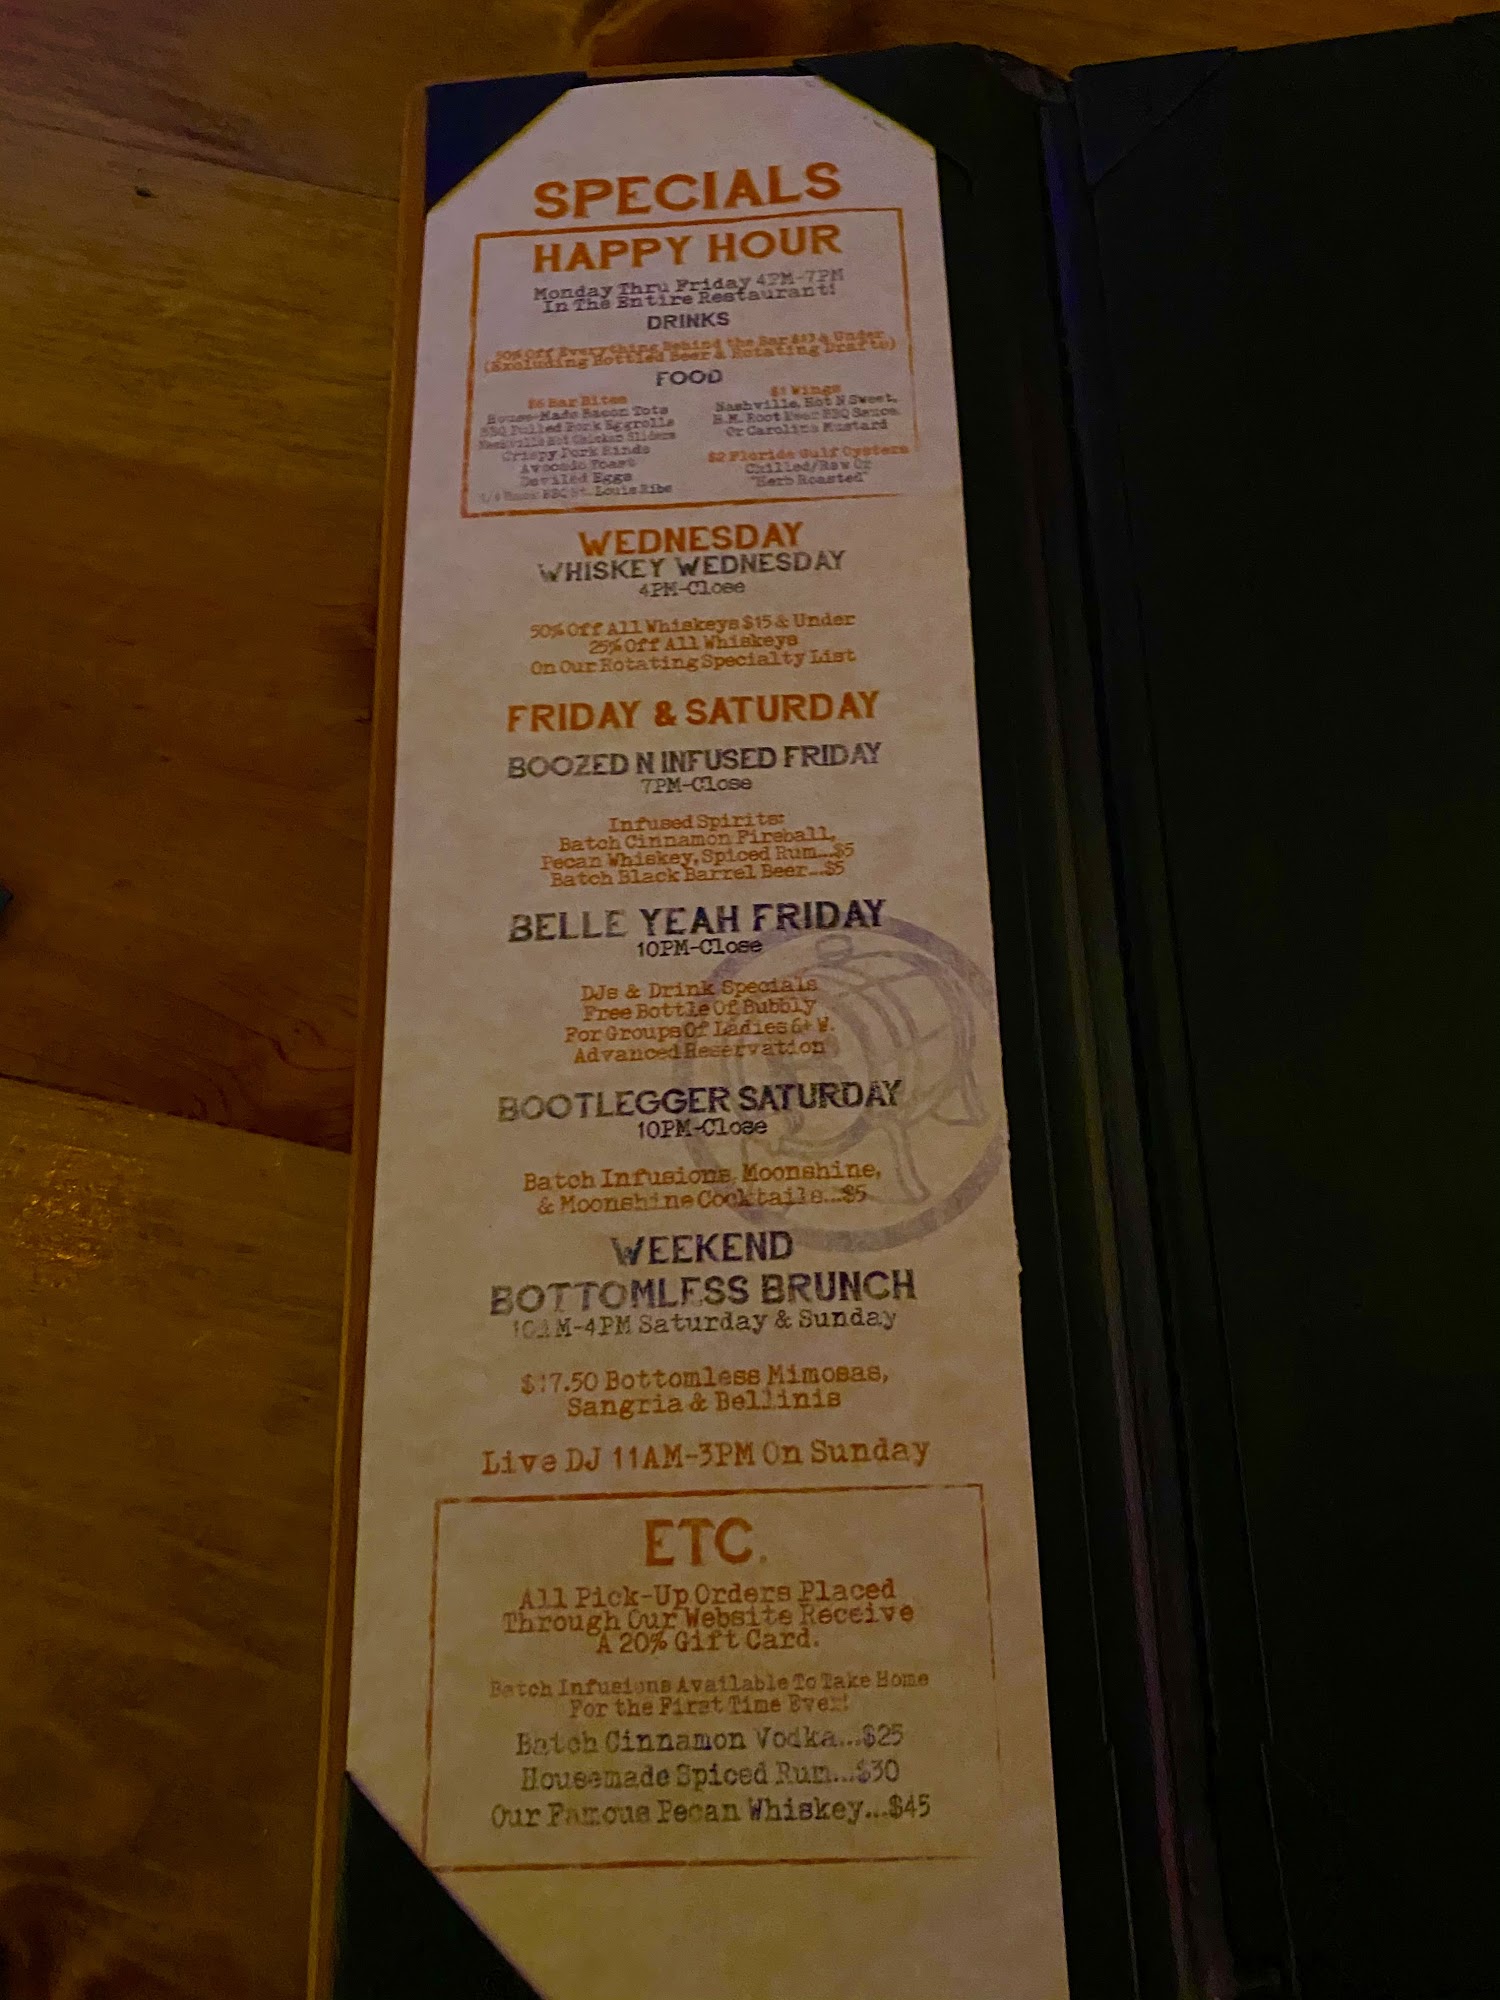 SPECIALS
HAPPY HOUR
Monday Thru Friday 4PM-7PM
In The Entire Restaurant!
DRINKS
50% Off Everything Behind the Bar $13 & Under
(Excluding Bottled Beer & Rotating Drafts)
FOOD
$6 Bar Bites
House-Made Bacon Tots
BBQ Pulled Pork Eggrolls
Nashville Hot Chicken Sliders
Crispy Pork Rinds
Avocado Toast
Deviled Eggs
1/4 Rack BBQ St. Louis Ribs
$1 Wings
Nashville, Hot N Sweet,
H.M. Root Beer BBQ Sauce,
Or Carolina Mustard
$2 Florida Gulf Oysters
Chilled/Raw Or
"Herb Roasted"
WEDNESDAY
WHISKEY WEDNESDAY
4PM-Close
50% Off All Whiskeys $15 & Under
25% Off All Whiskeys
On Our Rotating Specialty List
FRIDAY & SATURDAY
BOOZED N INFUSED FRIDAY
7PM-Close
Infused Spirits:
Batch Cinnamon Fireball,
Pecan Whiskey, Spiced Rum...$5
Batch Black Barrel Beer...$5
BELLE YEAH FRIDAY
10PM-Close
DJs & Drink Specials
Free Bottle Of Bubbly
For Groups Of Ladies 6+ W.
Advanced Reservation
BOOTLEGGER SATURDAY
10PM-Close
Batch Infusions, Moonshine,
& Moonshine Cocktails...$5
WEEKEND
BOTTOMLESS BRUNCH
10AM-4PM Saturday & Sunday
$17.50 Bottomless Mimosas,
Sangria & Bellinis
Live DJ 11AM-3PM On Sunday
ETC.
All Pick-Up Orders Placed
Through Our Website Receive
A 20% Gift Card.
Batch Infusions Available To Take Home
For the First Time Ever!
Batch Cinnamon Vodka...$25
Housemade Spiced Rum...$30
Our Famous Pecan Whiskey...$45